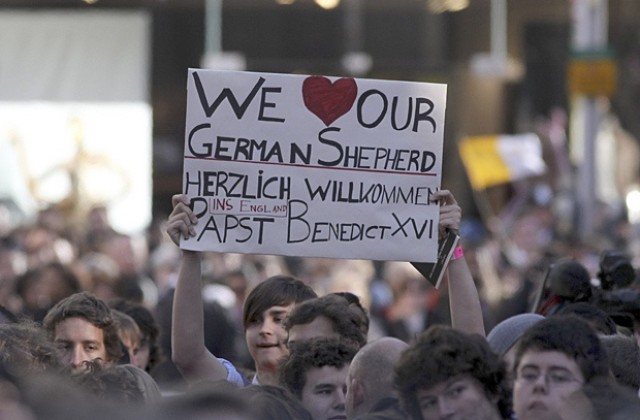 WE ❤ OUR
GERMAN SHEPHERD
HERZLICH WILLKOMMEN
INS ENGLAND
PAPST BENEDICT XVI